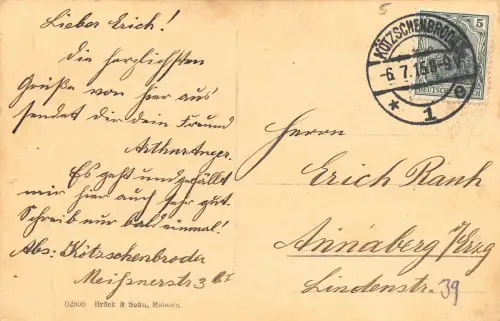 Lieber Erich!
Die herzlichsten
Grüße von hier aus
sendet dir dein Freund
Arthur
Es geht und gefällt
mir hier auch sehr gut.
Schreib nur bald einmal!
Abs: Kötzschenbroda
Meißnerstr 3
02805 Brück & Sohn, Meissen.
5
KÖTZSCHENBRODA
-6.7.15
* 1 e
5
Herrn
Erich Rauh
Annaberg i/Erzg
Lindenstr. 39